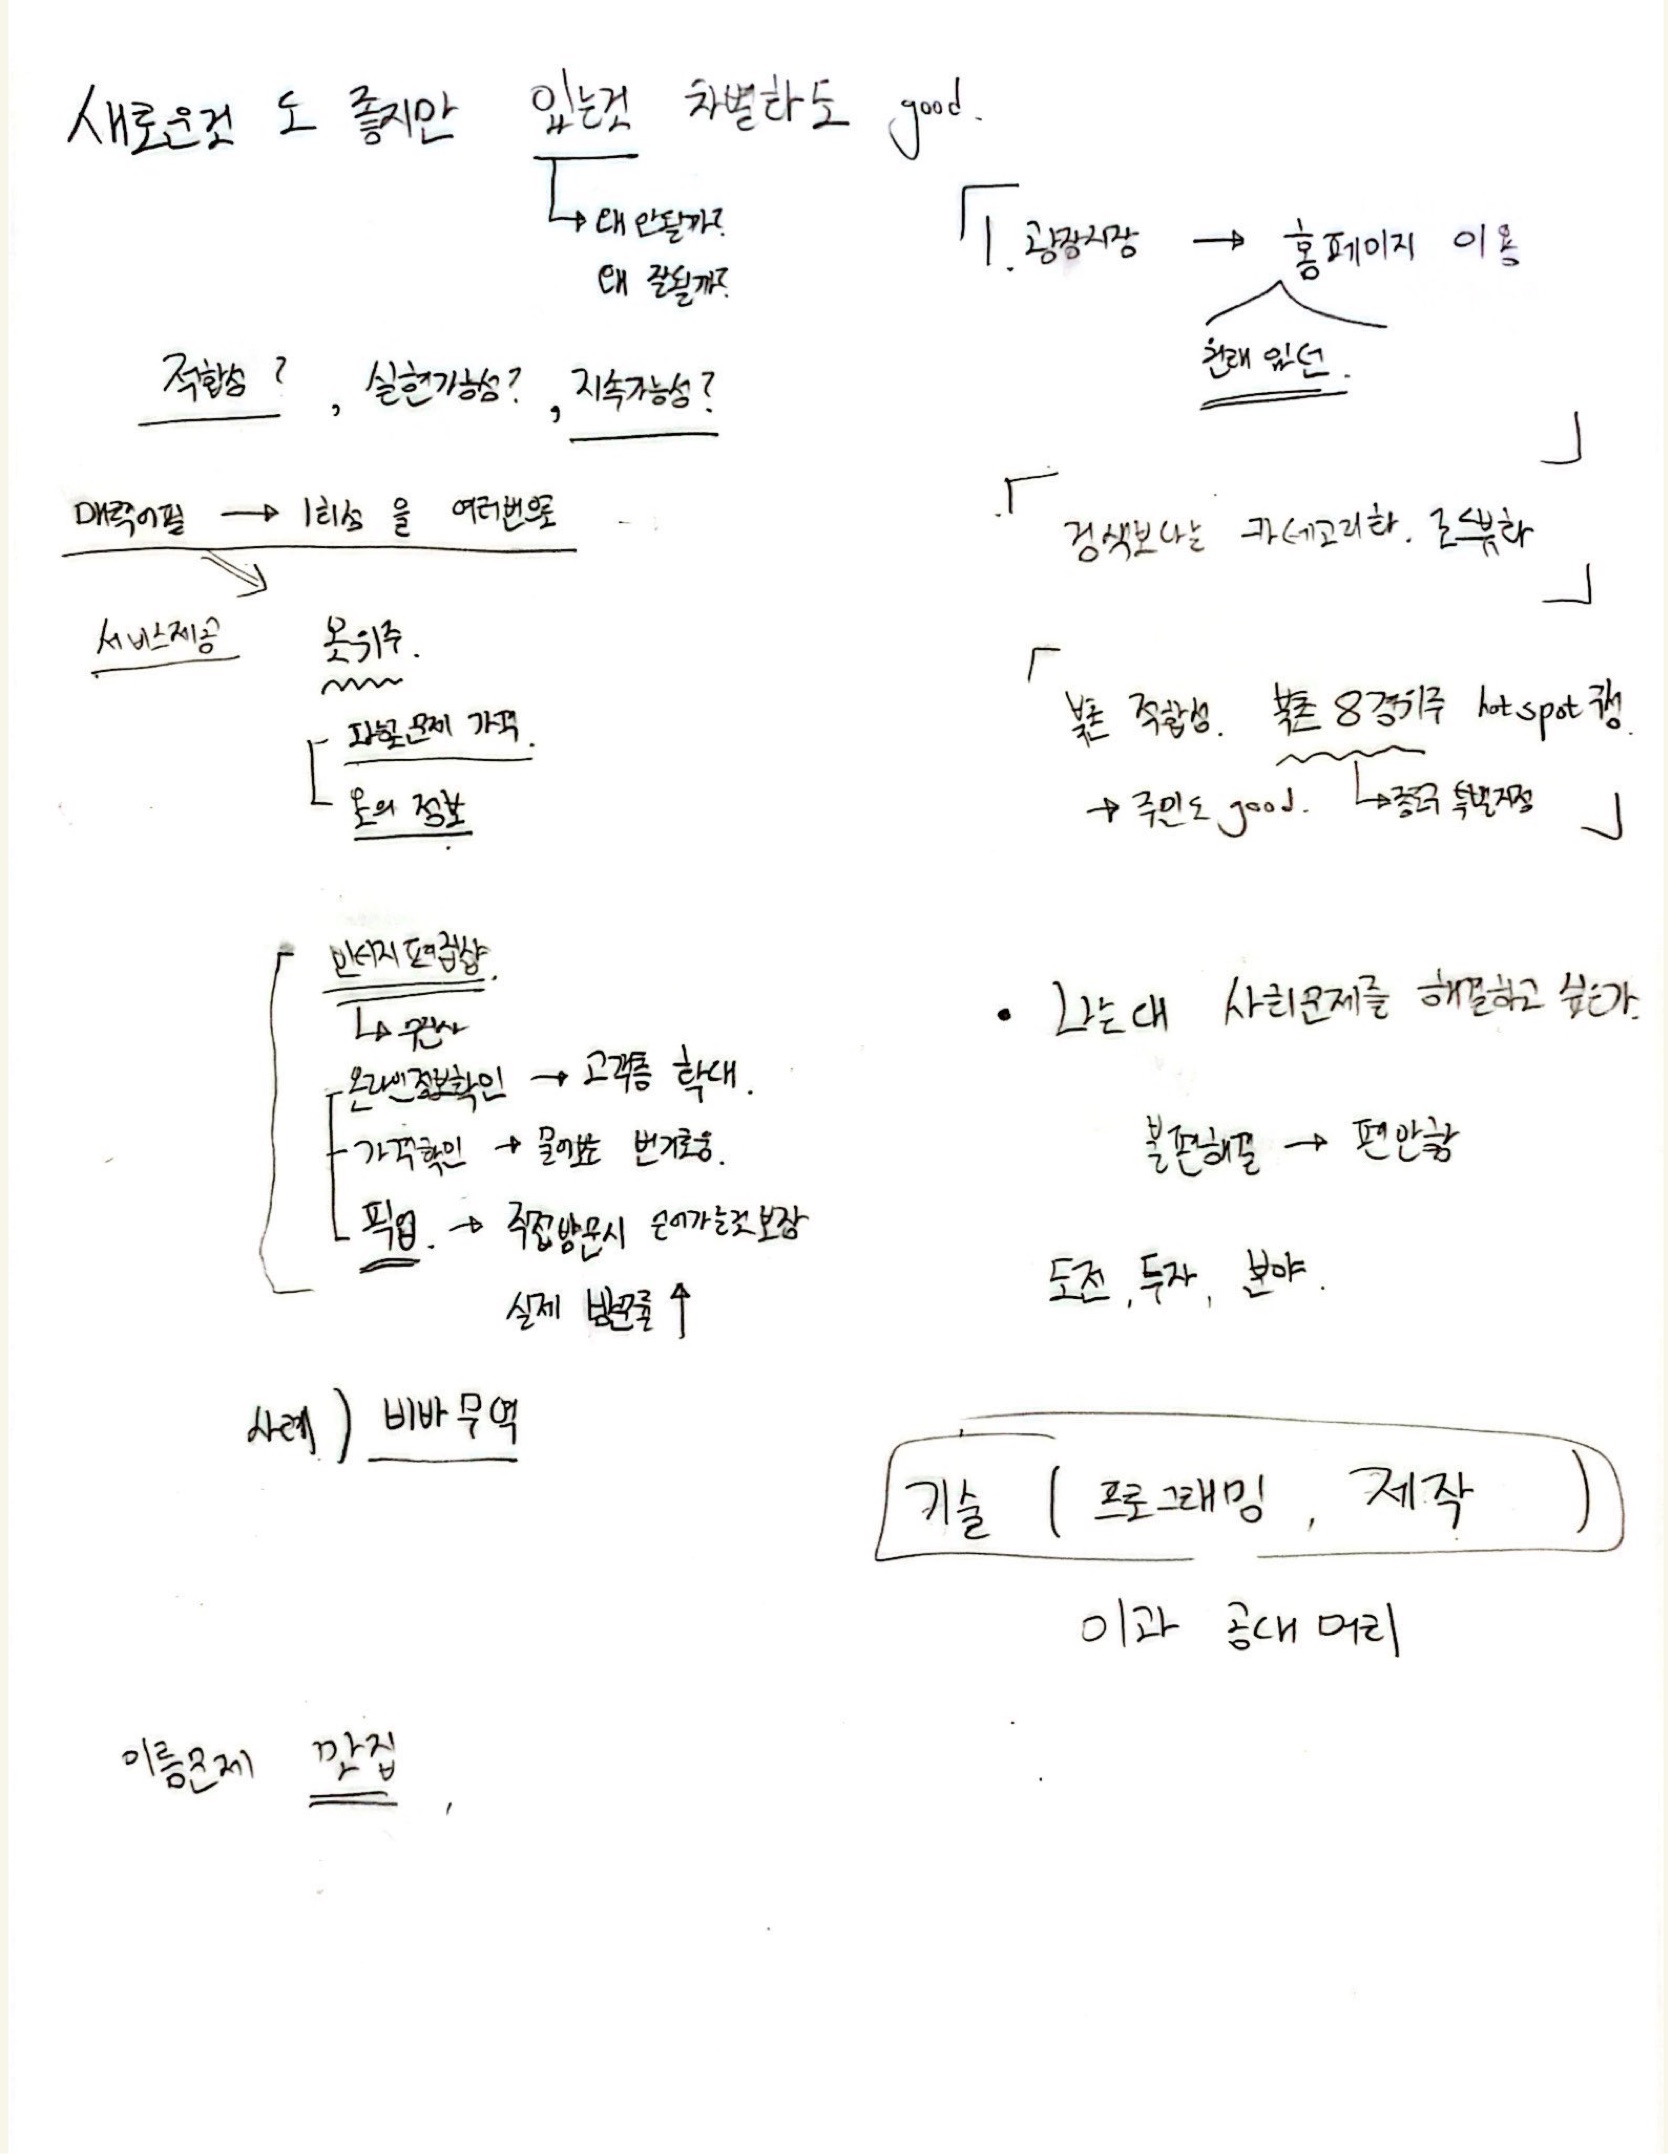 새로운것 도 좋지만 있는것 차별화도 good.
→ 왜 안될까?
왜 잘될까?
적합성? , 실현가능성? , 지속가능성?
매력어필 → 1회성 을 여러번으로
서비스제공 옷위주.
문제 가격.
옷의 정보
빈티지 편집샵.
→ 무신사
온라인정보확인 → 고객층 확대.
가격확인 → 물어보는 번거로움.
픽업. → 직접방문시 얻어가는것 보장
실제 방문률 ↑
사례) 비바무역
이름문제 깐집 ,
「1. 광장시장 → 홈페이지 이용
원래 있던.
」
「
검색보다는 카테고리화.
」
「
북촌 적합성. 북촌 8경위주 hotspot
→ 주민도 good. → 특별지정 」
• 나는 왜 사회문제를 해결하고 싶은가.
불편해결 → 편안함
도전, 투자, 분야.
기술 ( 프로그래밍, 제작 )
이과 공대 머리